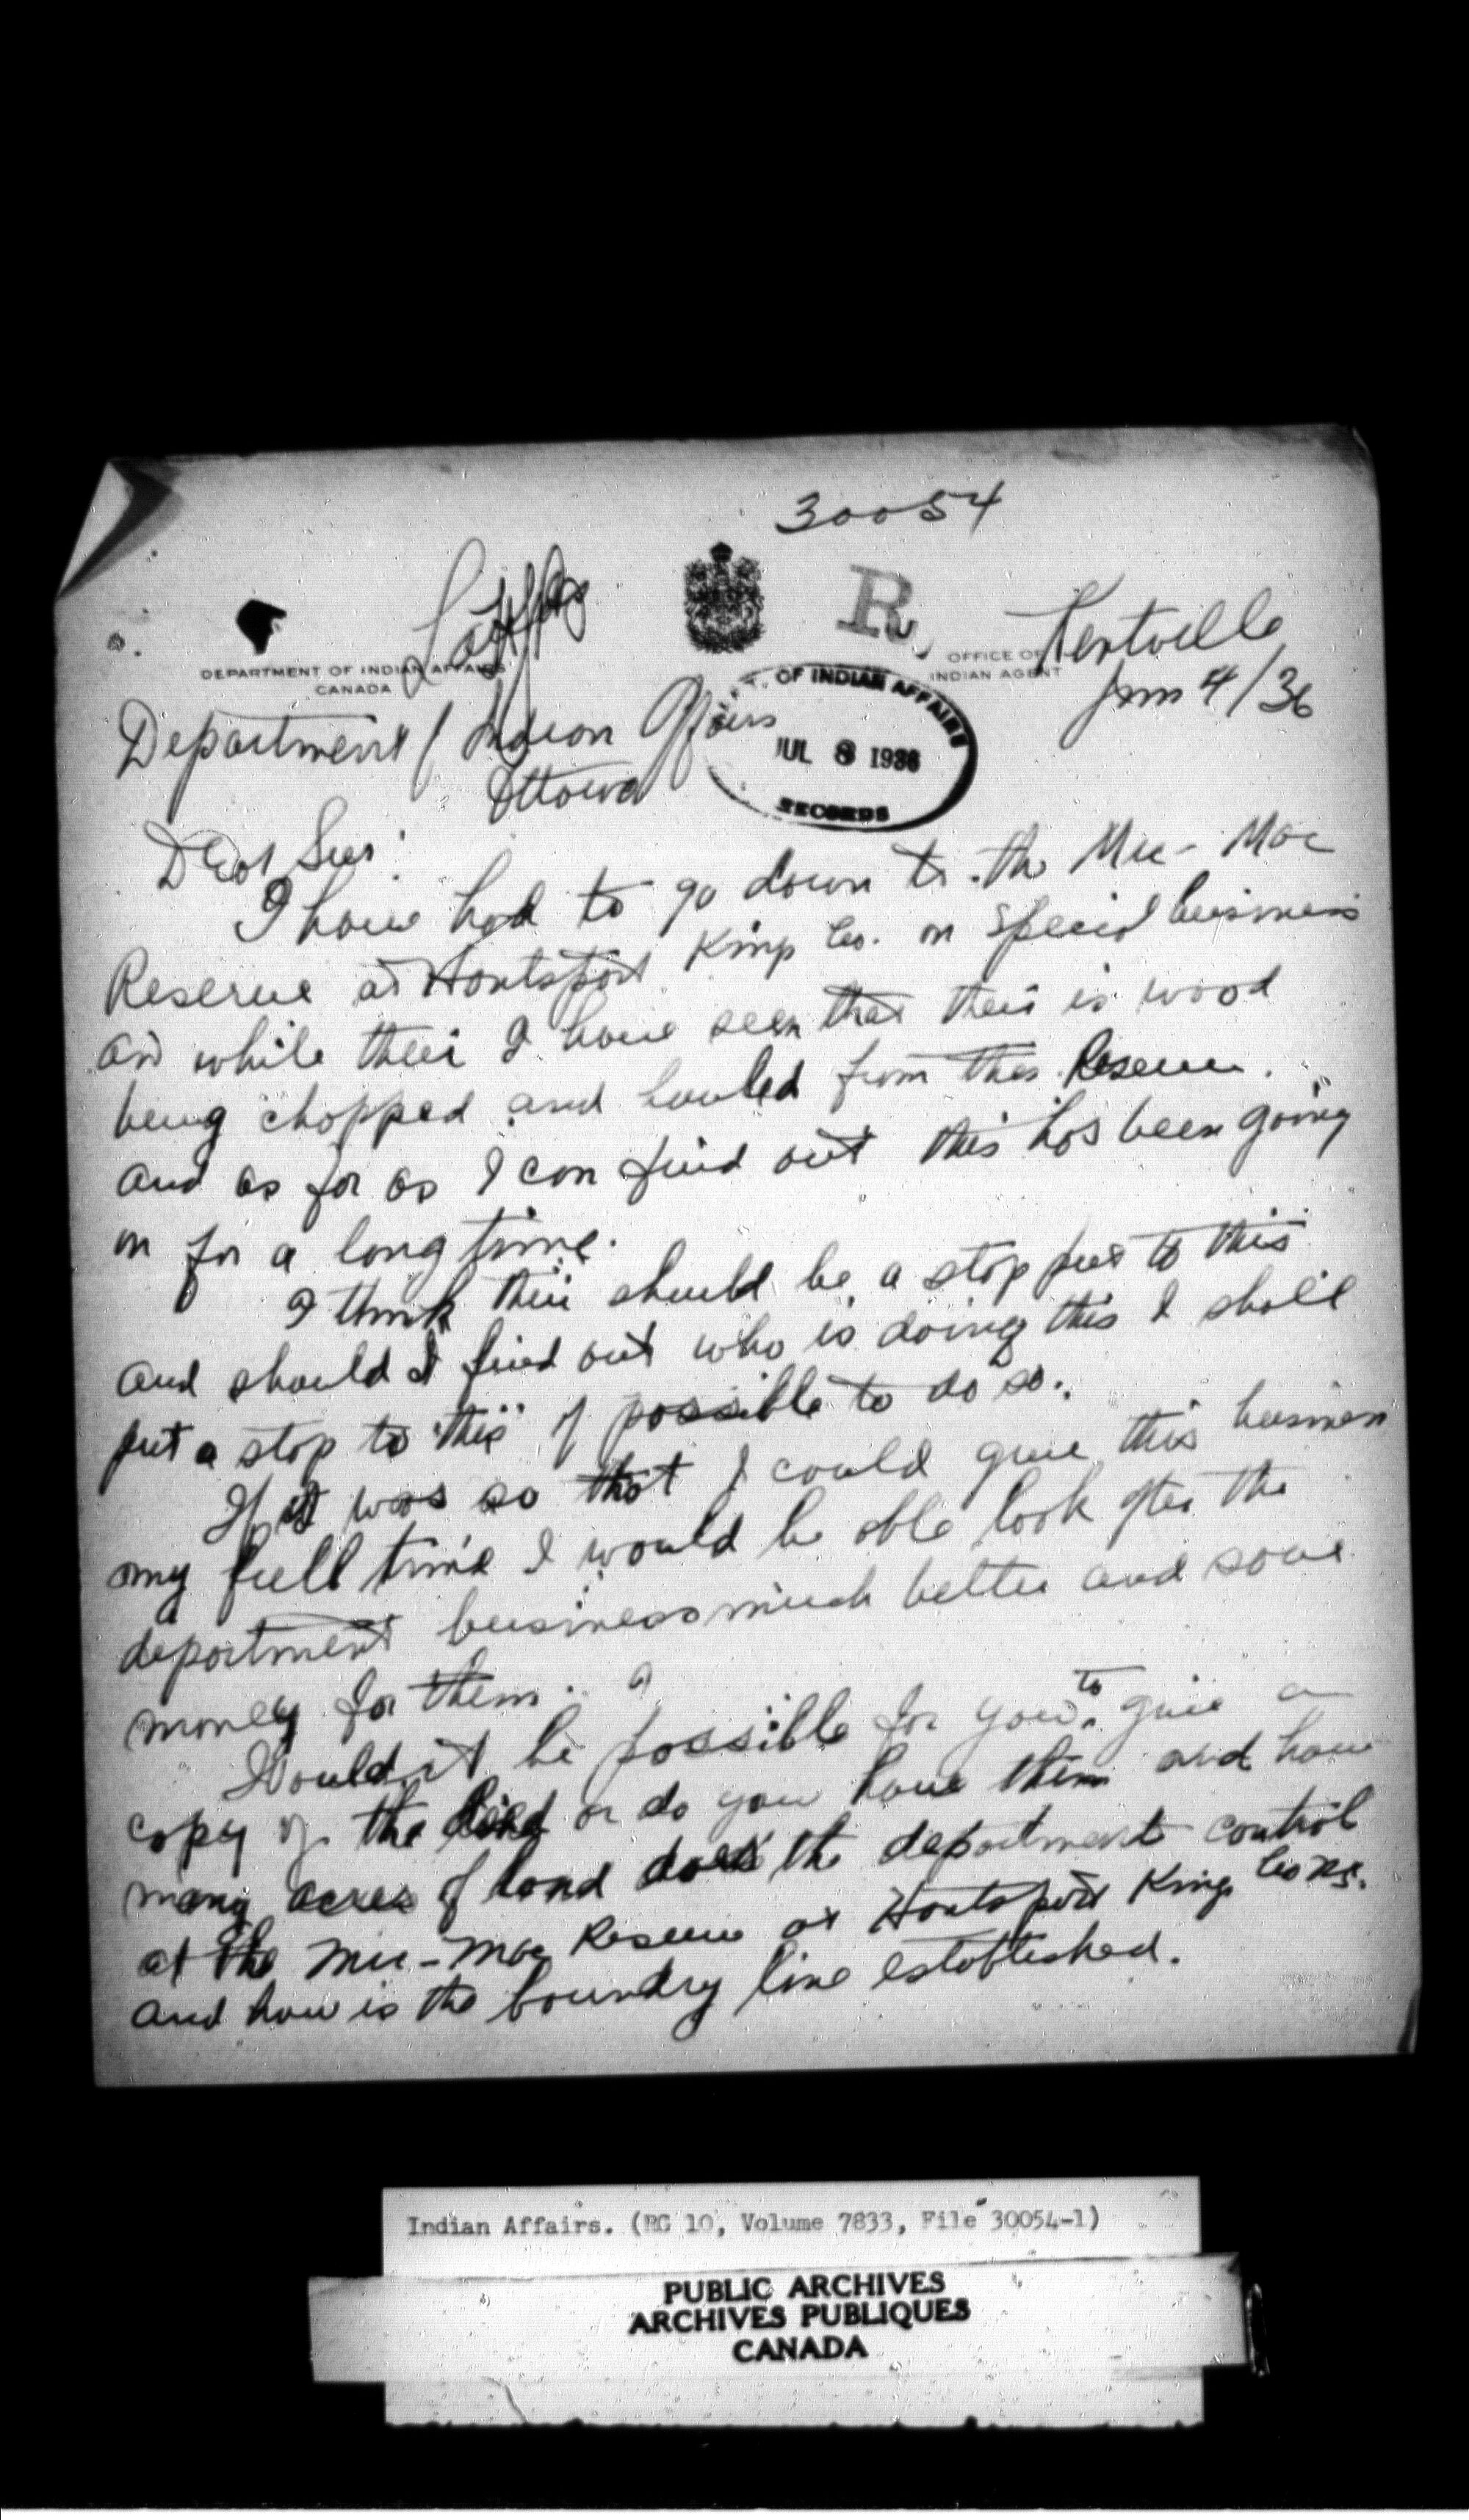 30054
R
DEPARTMENT OF INDIAN AFFAIRS
CANADA
OFFICE OF
INDIAN AGENT
Kentville
4/36
OF INDIAN AFFAIRS
JUL 8 1936
RECORDS
Department of Indian Affairs
Ottawa
Dear Sir:
I have had to go down to the Mic-Mac
Reserve at Hantsport Kings Co. on special business
and while their I have seen that their is wood
being chopped and hauled from this Reserve.
and as far as I can find out this has been going
on for a long time.
I think their should be a stop put to this
and should I find out who is doing this I shall
put a stop to this if possible to do so.
If it was so that I could give this business
my full time I would be able look after the
department business much better and save
money for them.
Would it be possible for you to give a
copy of the deed or do you have them and how
many acres of land does the department control
at the Mic-Mac Reserve at Hantsport Kings Co NS.
and how is the boundry line established.
Indian Affairs. (RG 10, Volume 7833, File 30054-1)
PUBLIC ARCHIVES
ARCHIVES PUBLIQUES
CANADA